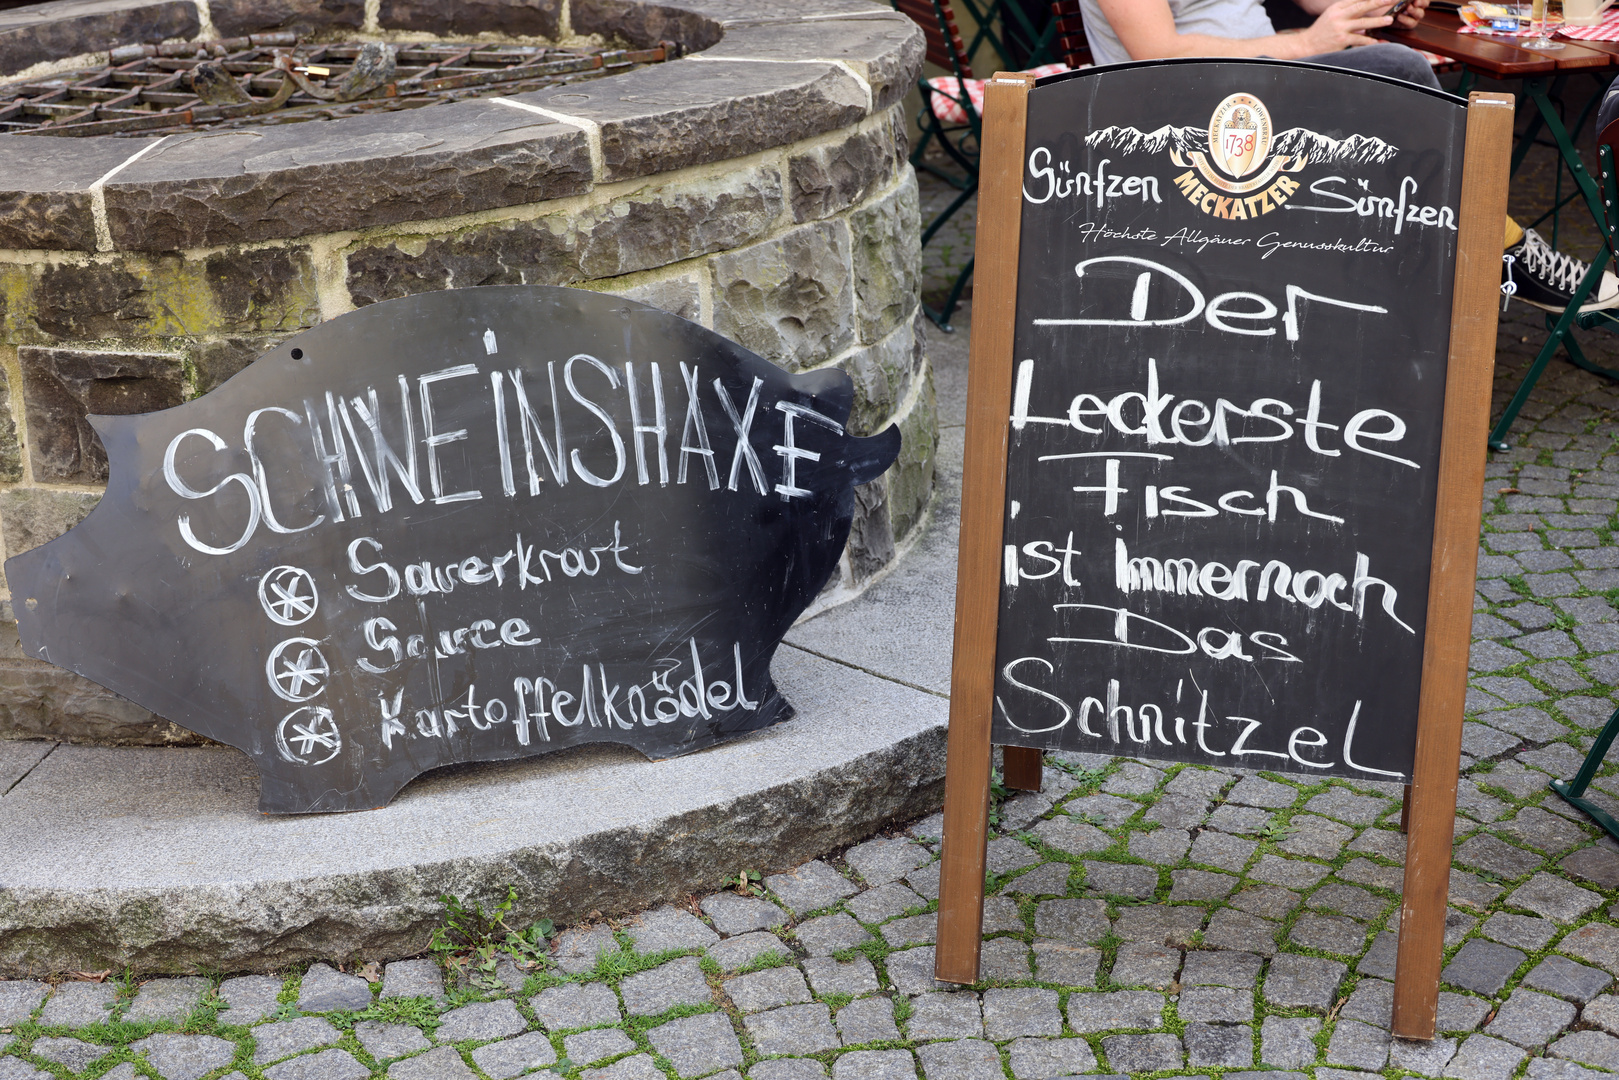 SCHWEiNSHAXE
Sauerkraut
Sauce
Kartoffelknödel
MECKATZER LÖWENBRÄU
1738
Sünfzen MECKATZER Sünfzen
Höchste Allgäuer Genusskultur
Der
Leckerste
Fisch
ist Immernoch
Das
Schnitzel